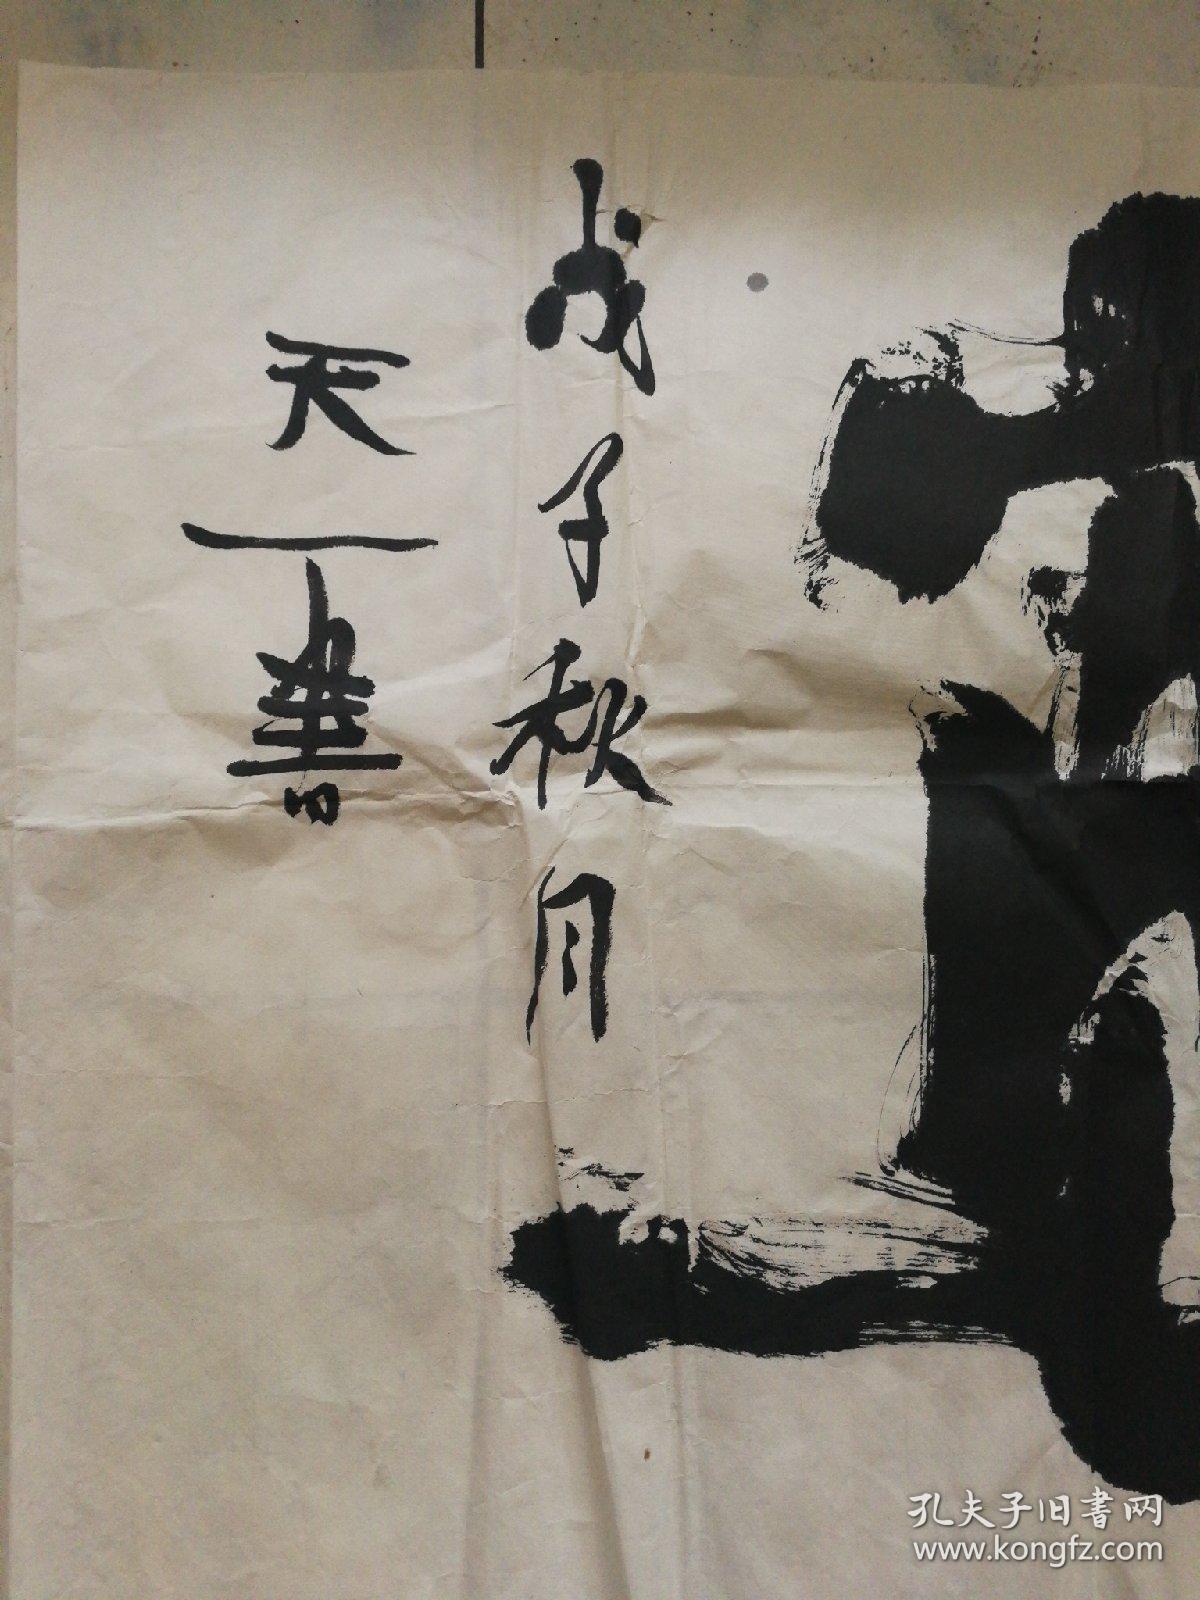 戊子秋月
天一書
孔夫子旧書网
www.kongfz.com